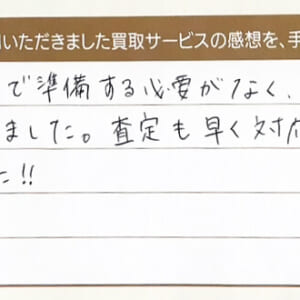 用いただきました買取サービスの感想を、手
で準備する必要がなく、
ました。査定も早く対応
た!!